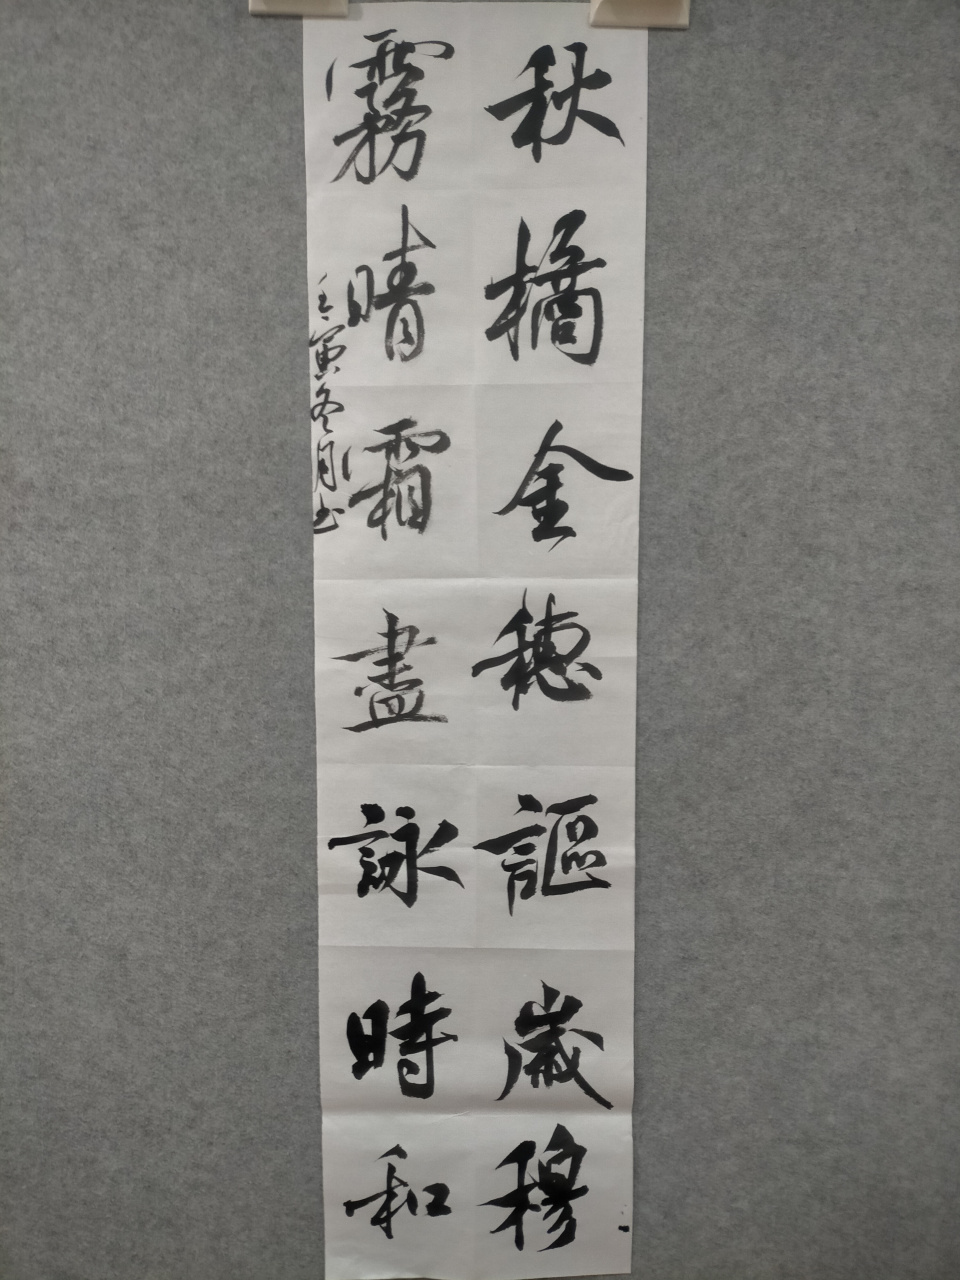 秋橘金穗謳歲穆
霧晴霜盡詠時和
壬寅冬月書